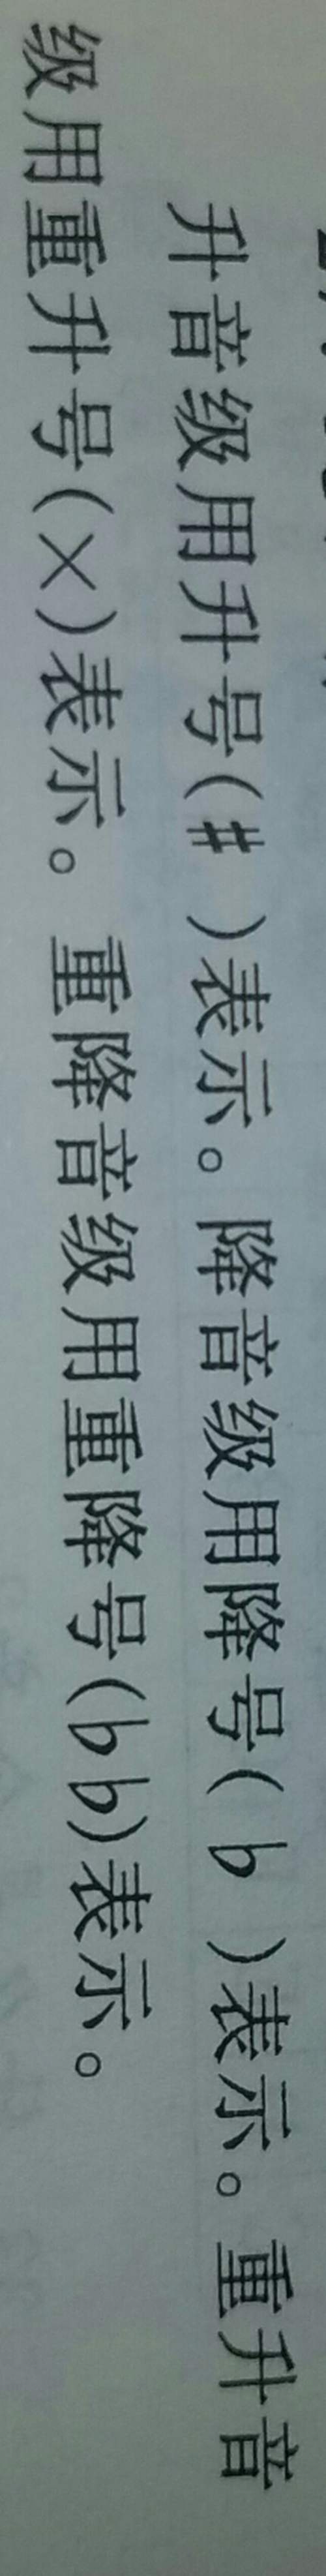 升音级用升号(♯)表示。降音级用降号(♭)表示。重升音
级用重升号(×)表示。重降音级用重降号(♭♭)表示。